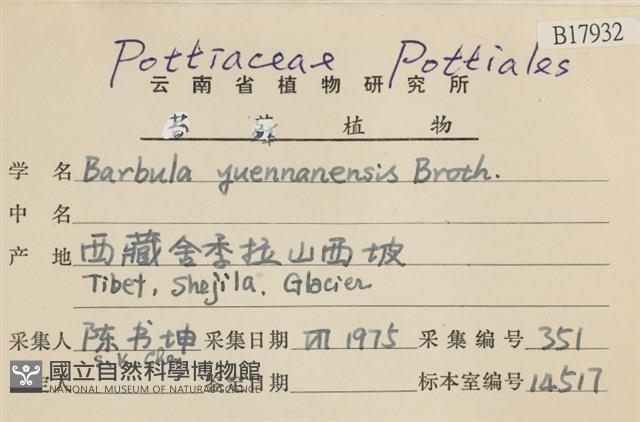 B17932
Pottiaceae Pottiales
云南省植物研究所
苔藓植物
学名 Barbula yuennanensis Broth.
中名
产地 西藏舍季拉山西坡
Tibet, Shejila, Glacier
采集人 陈书坤 采集日期 VII 1975 采集编号 351
國立自然科學博物館
NATIONAL MUSEUM OF NATURAL SCIENCE
日期 标本室编号 14517